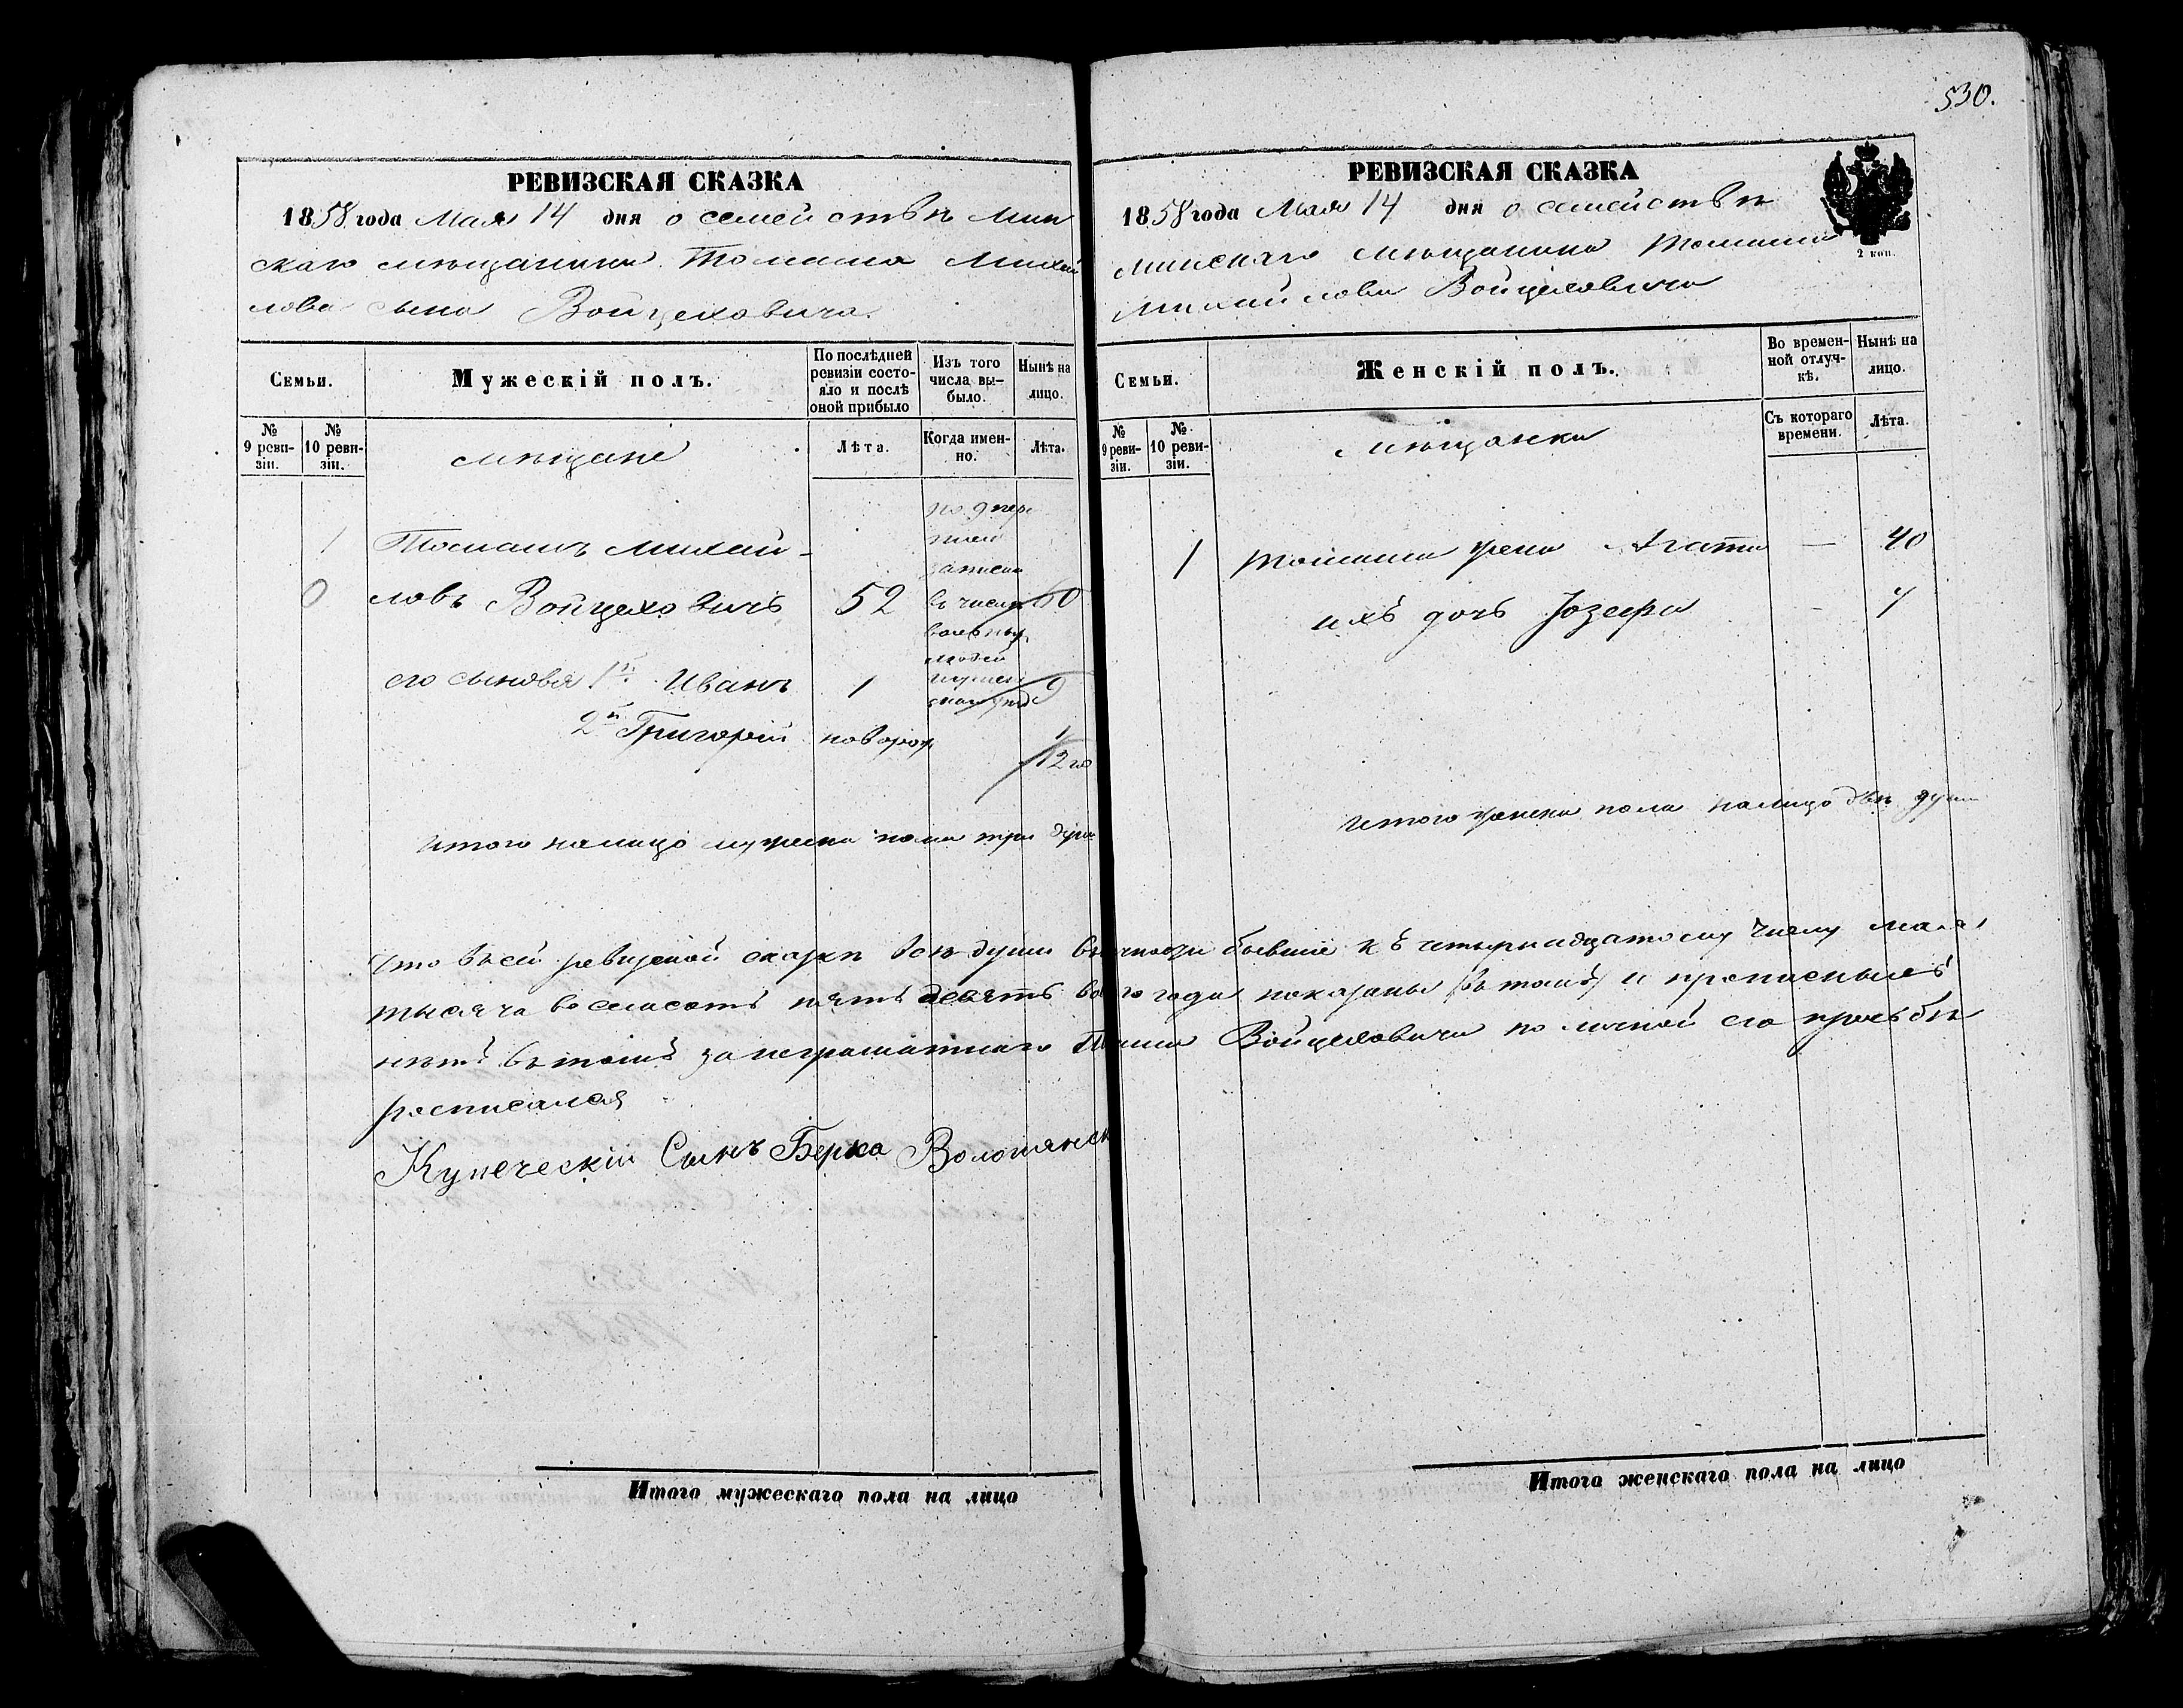 530.
РЕВИЗСКАЯ СКАЗКА
1858 года Мая 14 дня о семействѣ Мин
скаго мѣщанина Томаша Михай
лова сына Войцеховича.
Семьи.
Мужескій полъ.
По послѣдней ревизіи состояло и послѣ оной прибыло
Изъ того числа выбыло.
Нынѣ на лицо.
№ 9 ревизіи.
№ 10 ревизіи.
мѣщане
Лѣта.
Когда именно.
Лѣта.
по 9 ре
1 Томашъ Михай-
0 ловъ Войцеховичъ 52 60
въ числѣ
вольных
людей
его сыновья 1й Иванъ 1 9
2й Григорій новорож 1/12 го
Итого налицо мужеска пола три души
РЕВИЗСКАЯ СКАЗКА
1858 года Мая 14 дня о семействѣ
2 коп.
минскаго мѣщанина Томаша
Михайлова Войцеховича
Семьи.
Женскій полъ.
Во временной отлучкѣ.
Нынѣ на лицо.
№ 9 ревизіи.
№ 10 ревизіи.
мѣщанки
Съ котораго времени.
Лѣта.
1 Томаша жена Агата — 40
ихъ дочь Юзефа — 7
Итого женска пола налицо двѣ души
Что въ сей ревизской сказкѣ всѣ души въ бывшіе къ четырнадцатому числу мая
тысяча восмисотъ пятьдесятъ года показаны въ томъ и прописныхъ
нѣтъ въ томъ за неграматнаго Войцеховича по личной его прозьбѣ
росписался
Купеческій Сынъ Берка
Итого мужескаго пола на лицо
Итого женскаго пола на лицо